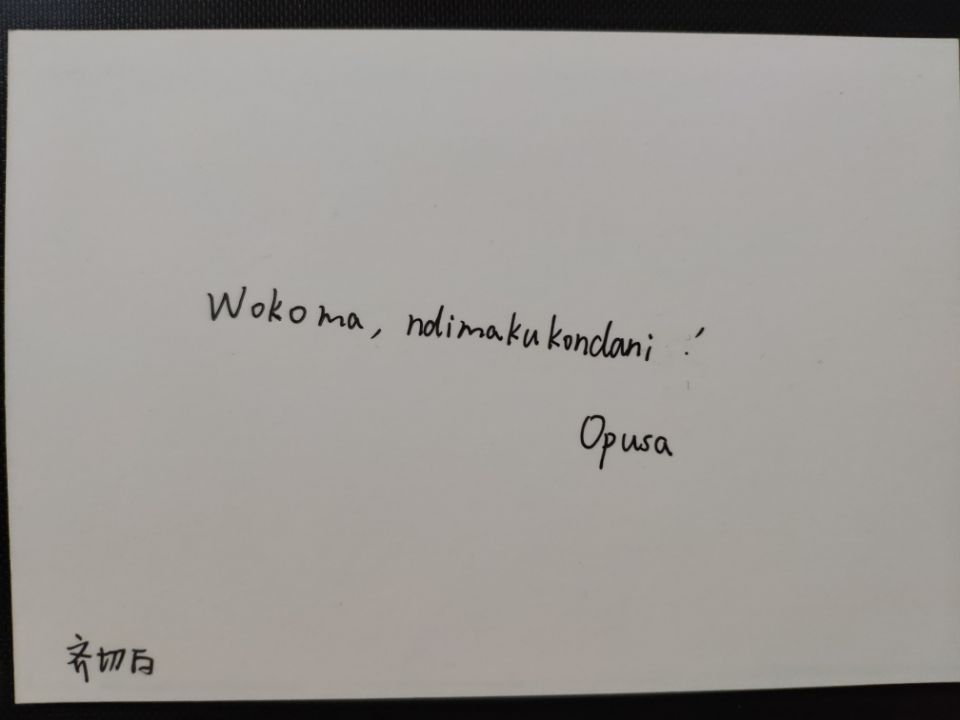 Wokoma, ndimakukondani!
Opusa
齐切瓦